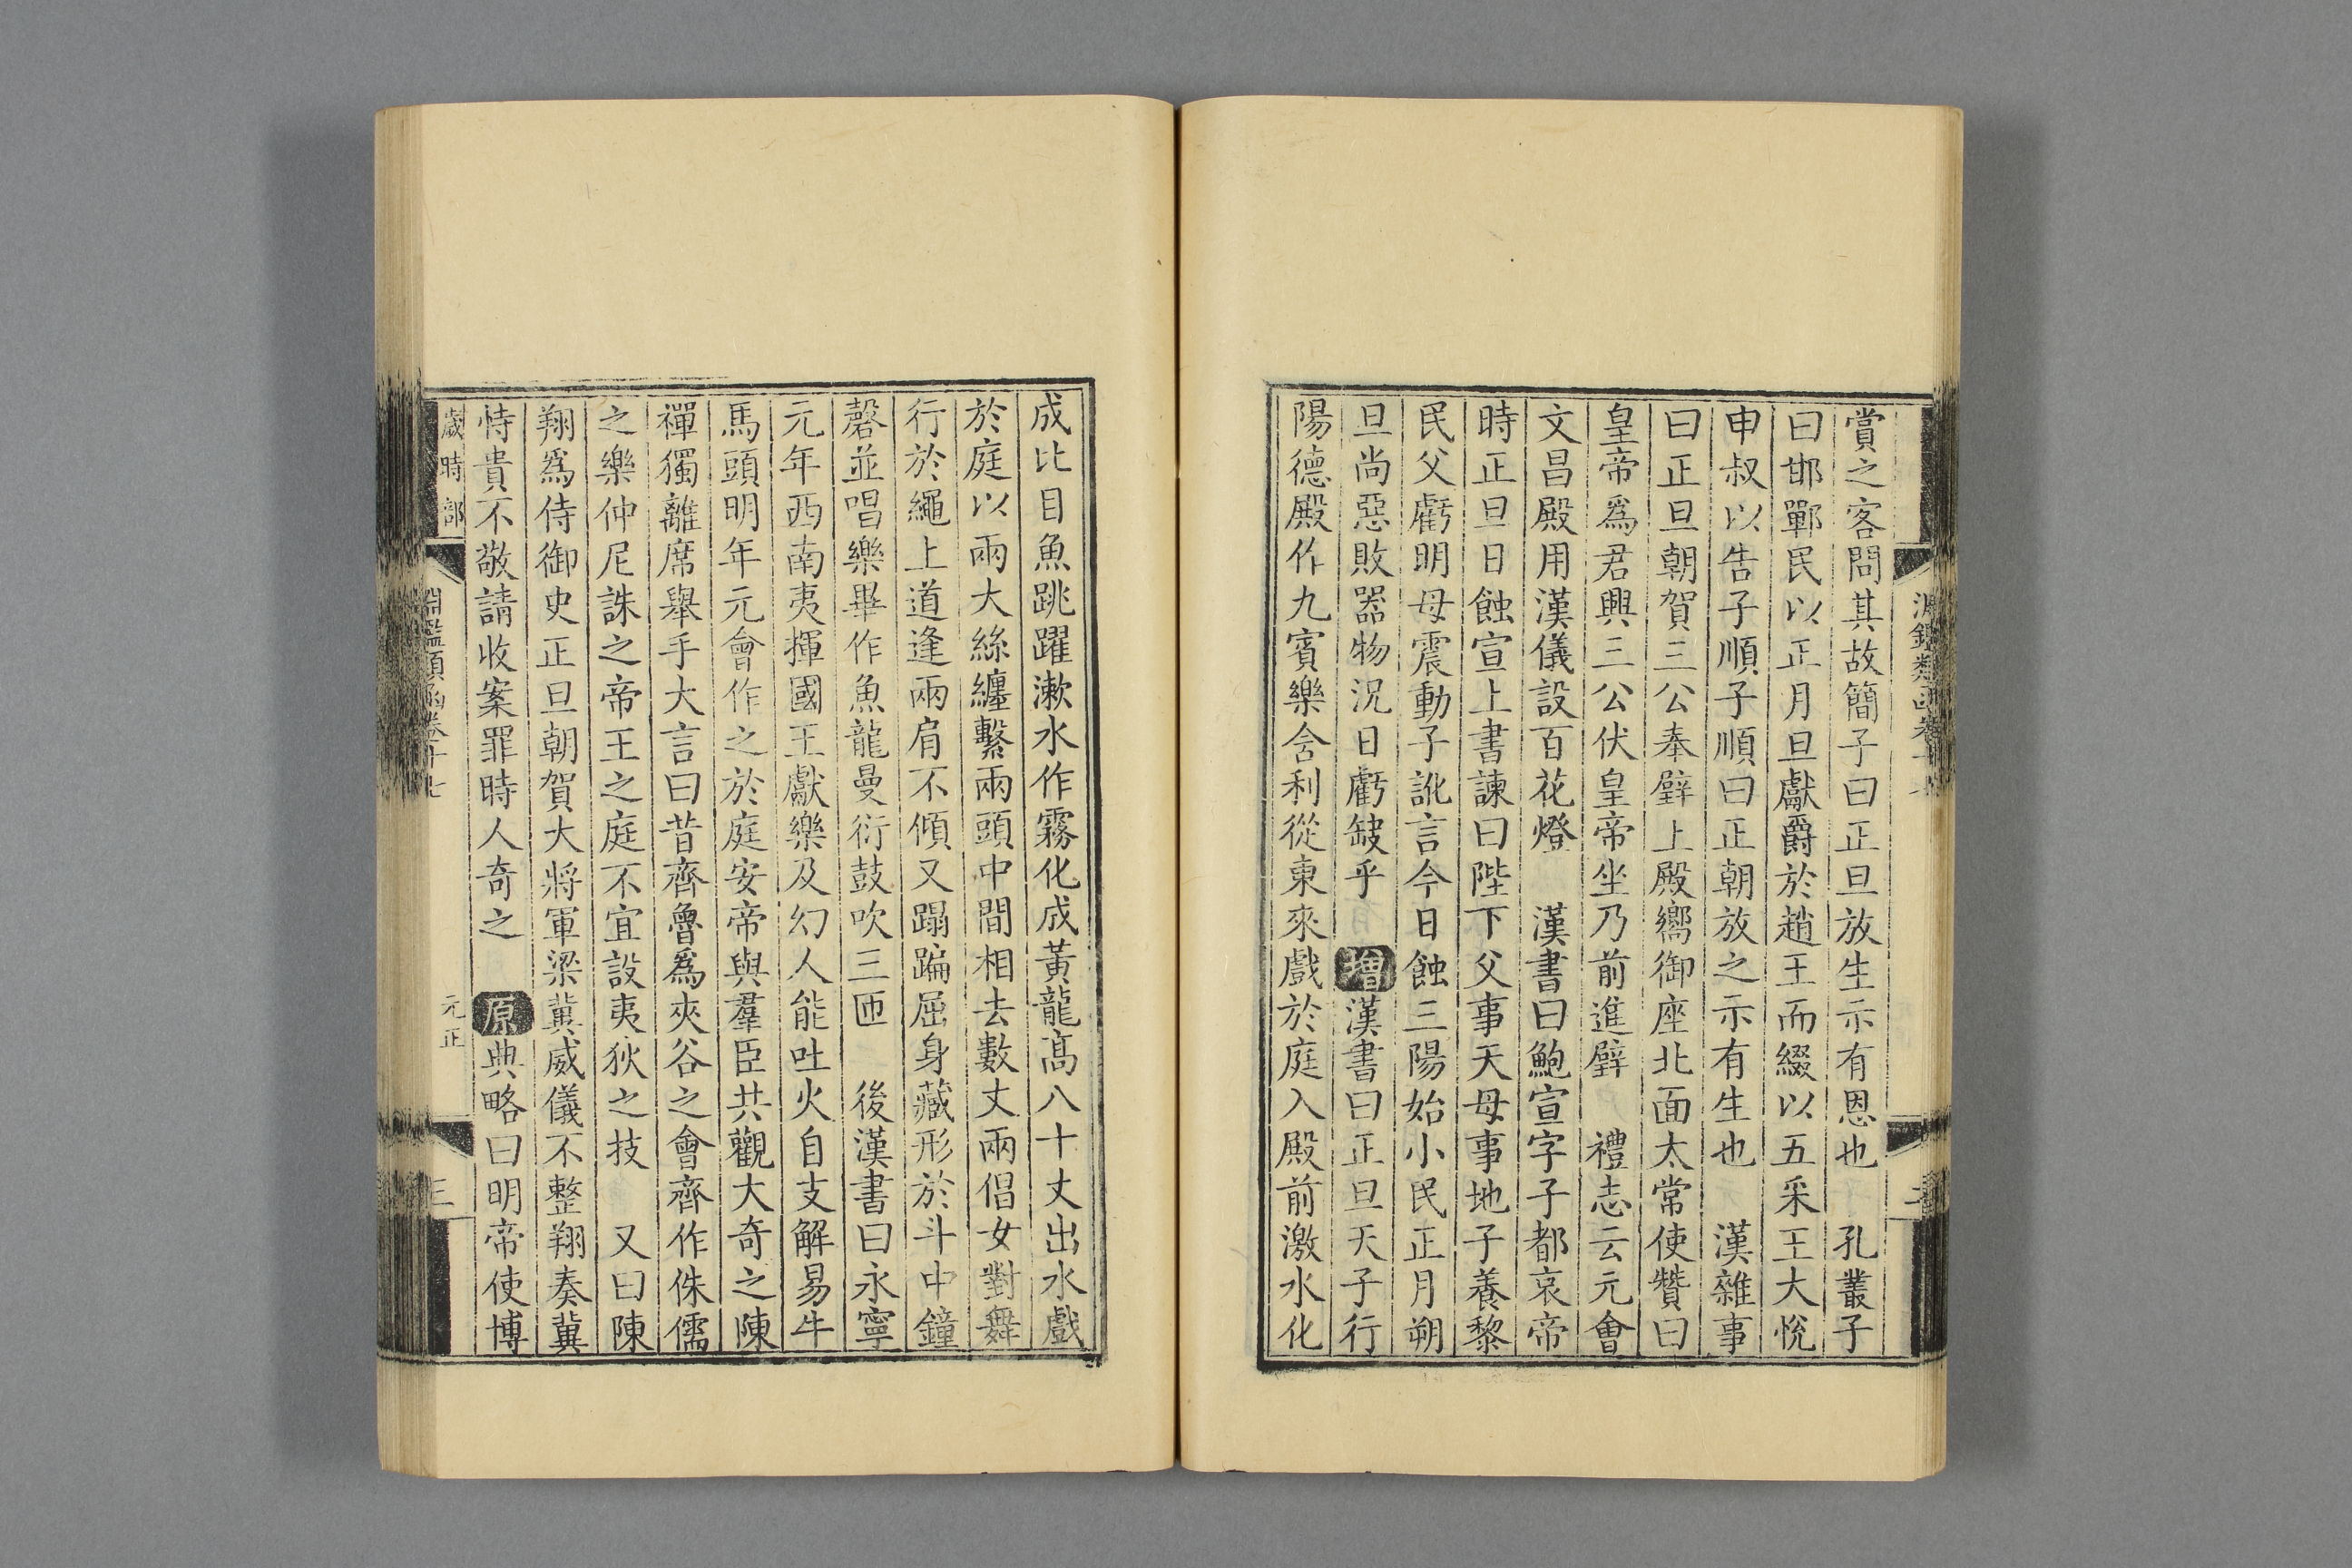 淵鑑類函卷十七
二
賞之客問其故簡子曰正旦放生示有恩也　孔叢子
曰邯鄲民以正月旦獻爵於趙王而綴以五采王大悅
申叔以告子順子順曰正朝放之示有生也　漢雜事
曰正旦朝賀三公奉璧上殿嚮御座北面太常使贊曰
皇帝爲君興三公伏皇帝坐乃前進璧　禮志云元會
文昌殿用漢儀設百花燈　漢書曰鮑宣字子都哀帝
時正旦日蝕宣上書諫曰陛下父事天母事地子養黎
民父虧明母震動子訛言今日蝕三陽始小民正月朔
旦尚惡敗器物況日虧缺乎　增漢書曰正旦天子行
陽德殿作九賓樂舍利從東來戲於庭入殿前激水化
成比目魚跳躍漱水作霧化成黃龍高八十丈出水戲
於庭以兩大絲纏繫兩頭中間相去數丈兩倡女對舞
行於繩上道逢兩肩不傾又蹋蹁屈身藏形於斗中鐘
磬並唱樂畢作魚龍曼衍鼓吹三匝　後漢書曰永寧
元年西南夷撣國王獻樂及幻人能吐火自支解易牛
馬頭明年元會作之於庭安帝與羣臣共觀大奇之陳
禪獨離席舉手大言曰昔齊魯爲夾谷之會齊作侏儒
之樂仲尼誅之帝王之庭不宜設夷狄之技　又曰陳
翔爲侍御史正旦朝賀大將軍梁冀威儀不整翔奏冀
恃貴不敬請收案罪時人奇之　原典略曰明帝使博
歲時部
淵鑑類函卷十七
元正
三